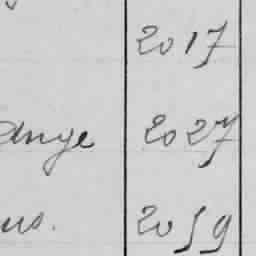 2017
ange 2027
us. 2059